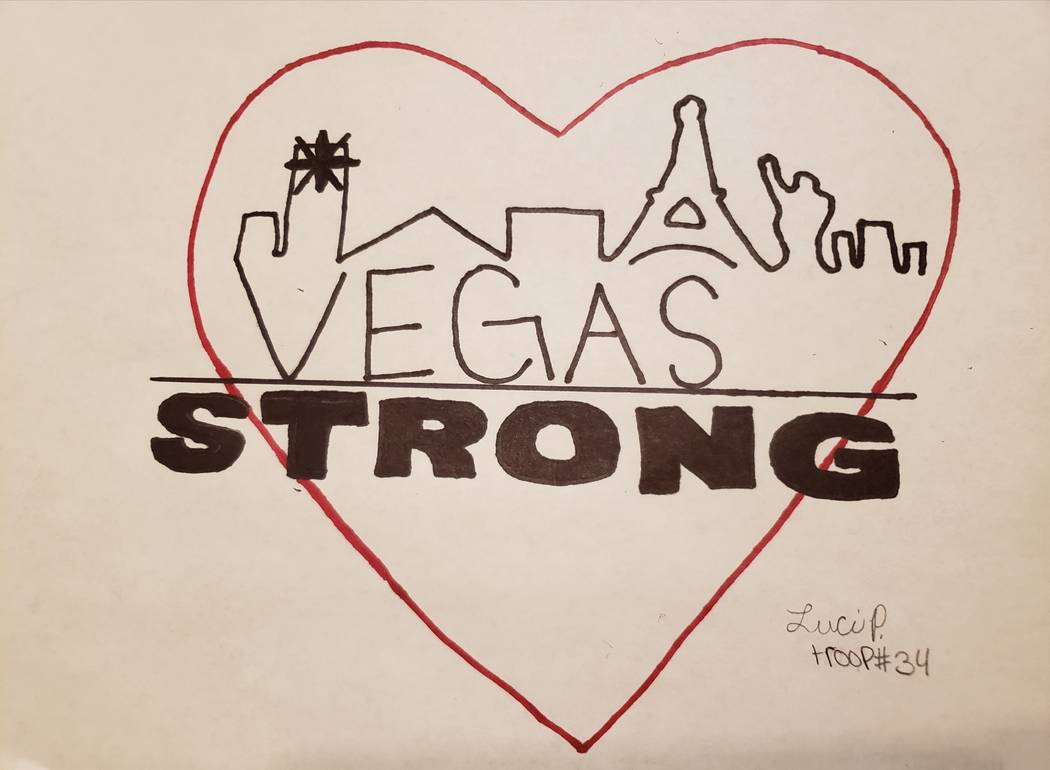 VEGAS
STRONG
Luci P.
troop#34